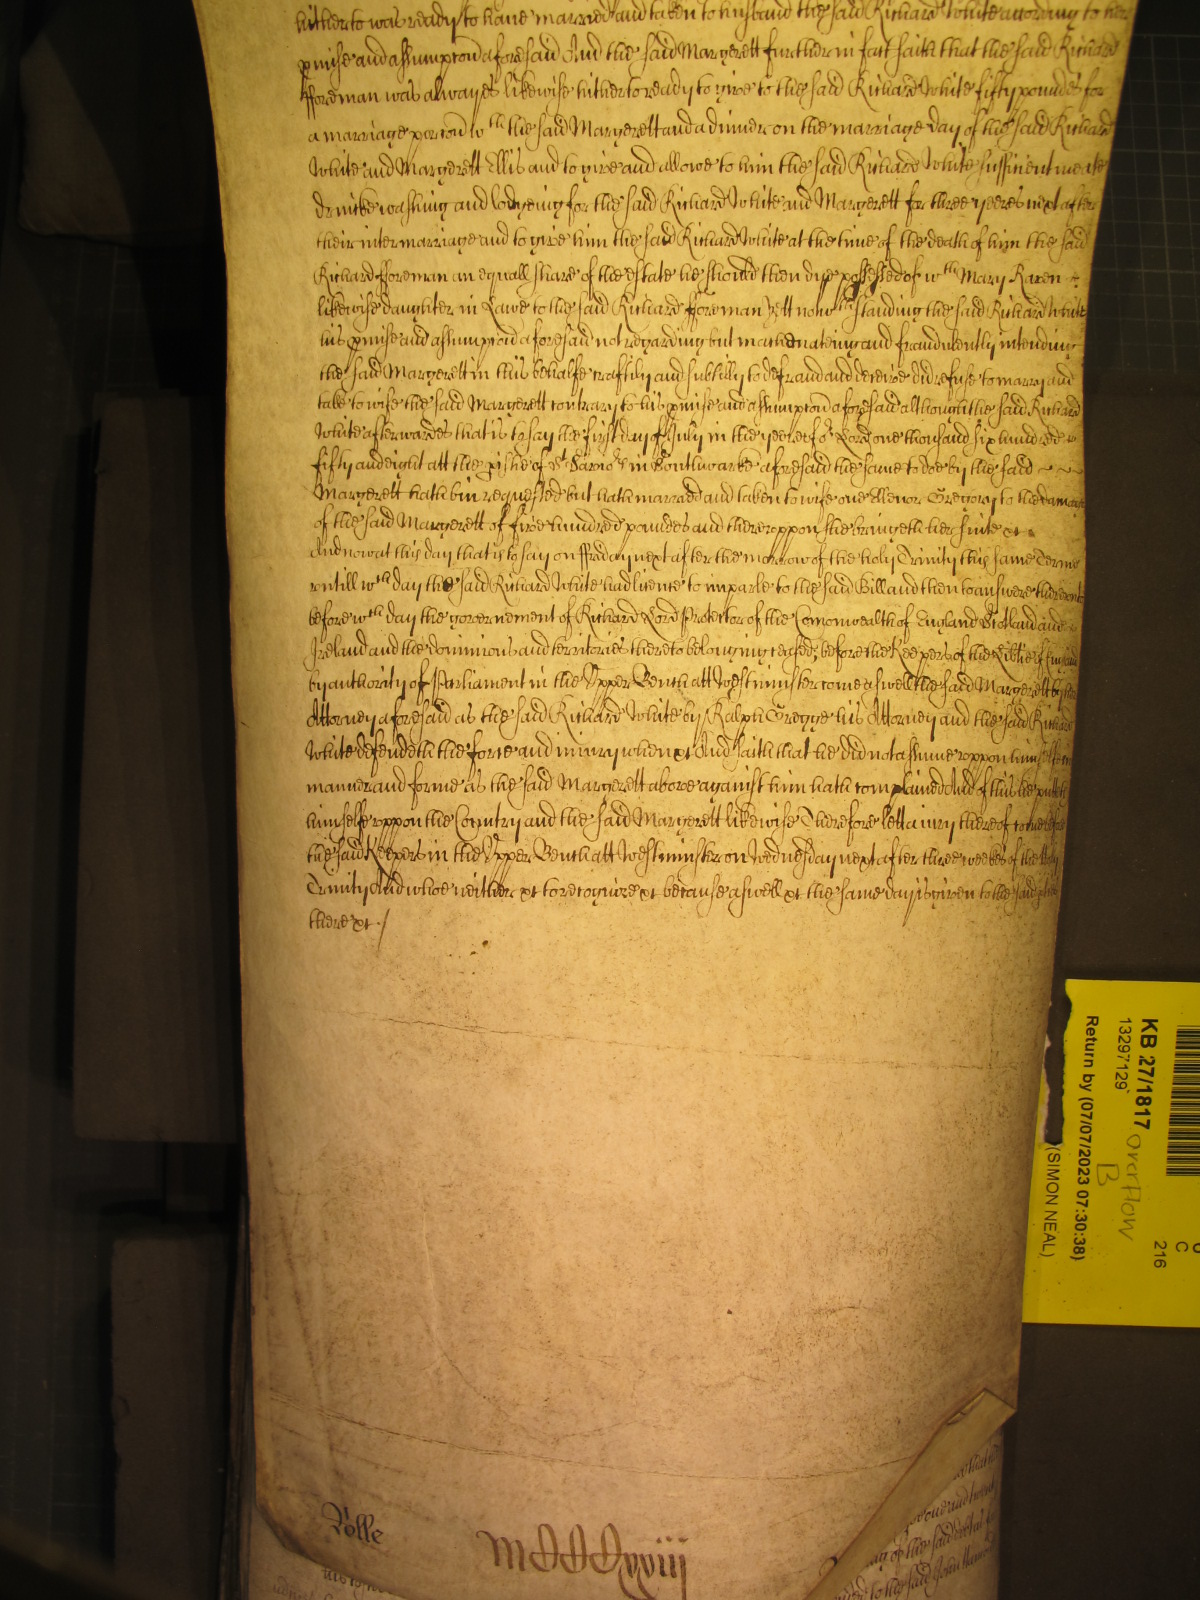 hitherto was ready to have married and taken to husband the said Richard White according to her
pmise and assumpcon aforesaid And the said Margerett further in fact saith that the said Richard
fforeman was alwayes likewise hitherto ready to give to the said Richard White fifty poundes for
a marriage porcon wth the said Margerett and a dinner on the marriage day of the said Richard
White and Margerett Ellis and to give and allowe to him the said Richard White sufficient meate
drincke washing and lodgeing for the said Richard White and Margerett for three yeeres next after
their intermarriage and to give him the said Richard White at the time of the death of him the said
Richard fforeman an equall share of the estate he should then dye possessed of wth Mary Raven
likewise daughter in Lawe to the said Richard fforeman Yett notwthstanding the said Richard White
his pmise and assumpcon aforesaid not regarding but machinateing and fraudulently intending
the said Margerett in this behalfe craftily and subtilly to defraud and deceive did refuse to marry and
take to wife the said Margerett contrary to his pmise and assumpcon aforesaid although the said Richard
White afterwardes that is to say the first day of July in the yeere of or Lord one thousand six hundred
fifty and eight att the pishe of St Saviors in Southwarke aforesaid the same to doe by the said
Margerett hath bin requested but hath marryed and taken to wife one Elienor Gregory to the damage
of the said Margerett of five hundred poundes and thereuppon she bringeth her suite xt
And now at this day that is to say on ffriday next after the morrow of the holy Trinity this same Terme
untill wch day the said Richard White had licence to imparle to the said Bill and then to answere thereunto
before wch day the governement of Richard Lord Protector of the Comonwealth of England Scotland and
Ireland and the dominions and territories thereto belonging ceased, before the Keepers of the Libtie of England
by authority of Parliament in the Upper Bench att Westminster come aswell the said Margerett by her
Attorney aforesaid as the said Richard White by Ralph Gregge his Attorney and the said Richard
White defendeth the force and iniury when xt And saith that he did not assume uppon himselfe in
manner and forme as the said Margerett above against him hath complained And of this he putteth
himselfe uppon the Country and the said Margerett likewise Therefore lett a iury thereof come before
the said Keepers in the Upper Bench att Westminster on Wednesday next after three weekes of the Holy
Trinity And whoe neither xt to recognize xt because aswell xt the same day is given to the said pties
there xt
Rolle
KB 27/1817
13297129
Return by (07/07/2023 07:30:38)
(SIMON NEAL)
overflow
B
C
216